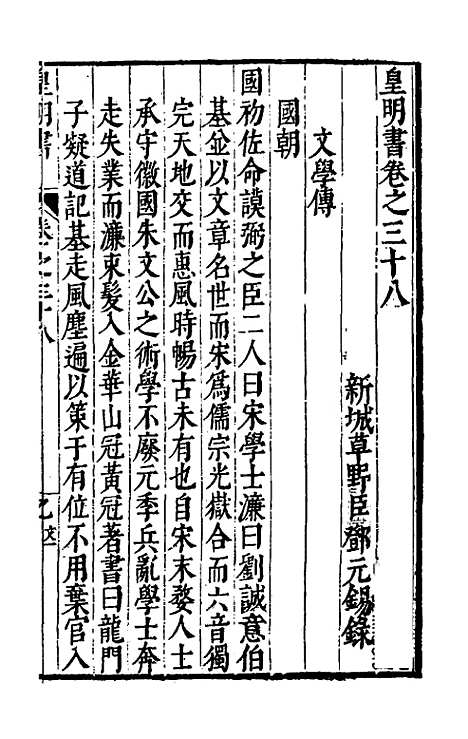 皇明書卷之三十八
新城草野臣鄧元錫錄
文學傳
國朝
國初佐命謨弼之臣二人曰宋學士濂曰劉誠意伯
基並以文章名世而宋爲儒宗光嶽合而六音獨
完天地交而惠風時暢古未有也自宋末婺人士
承守徽國朱文公之術學不廢元季兵亂學士奔
走失業而濂束髮入金華山冠黃冠著書曰龍門
子凝道記基走風塵遍以策于有位不用棄官入
皇明書
卷之三十八